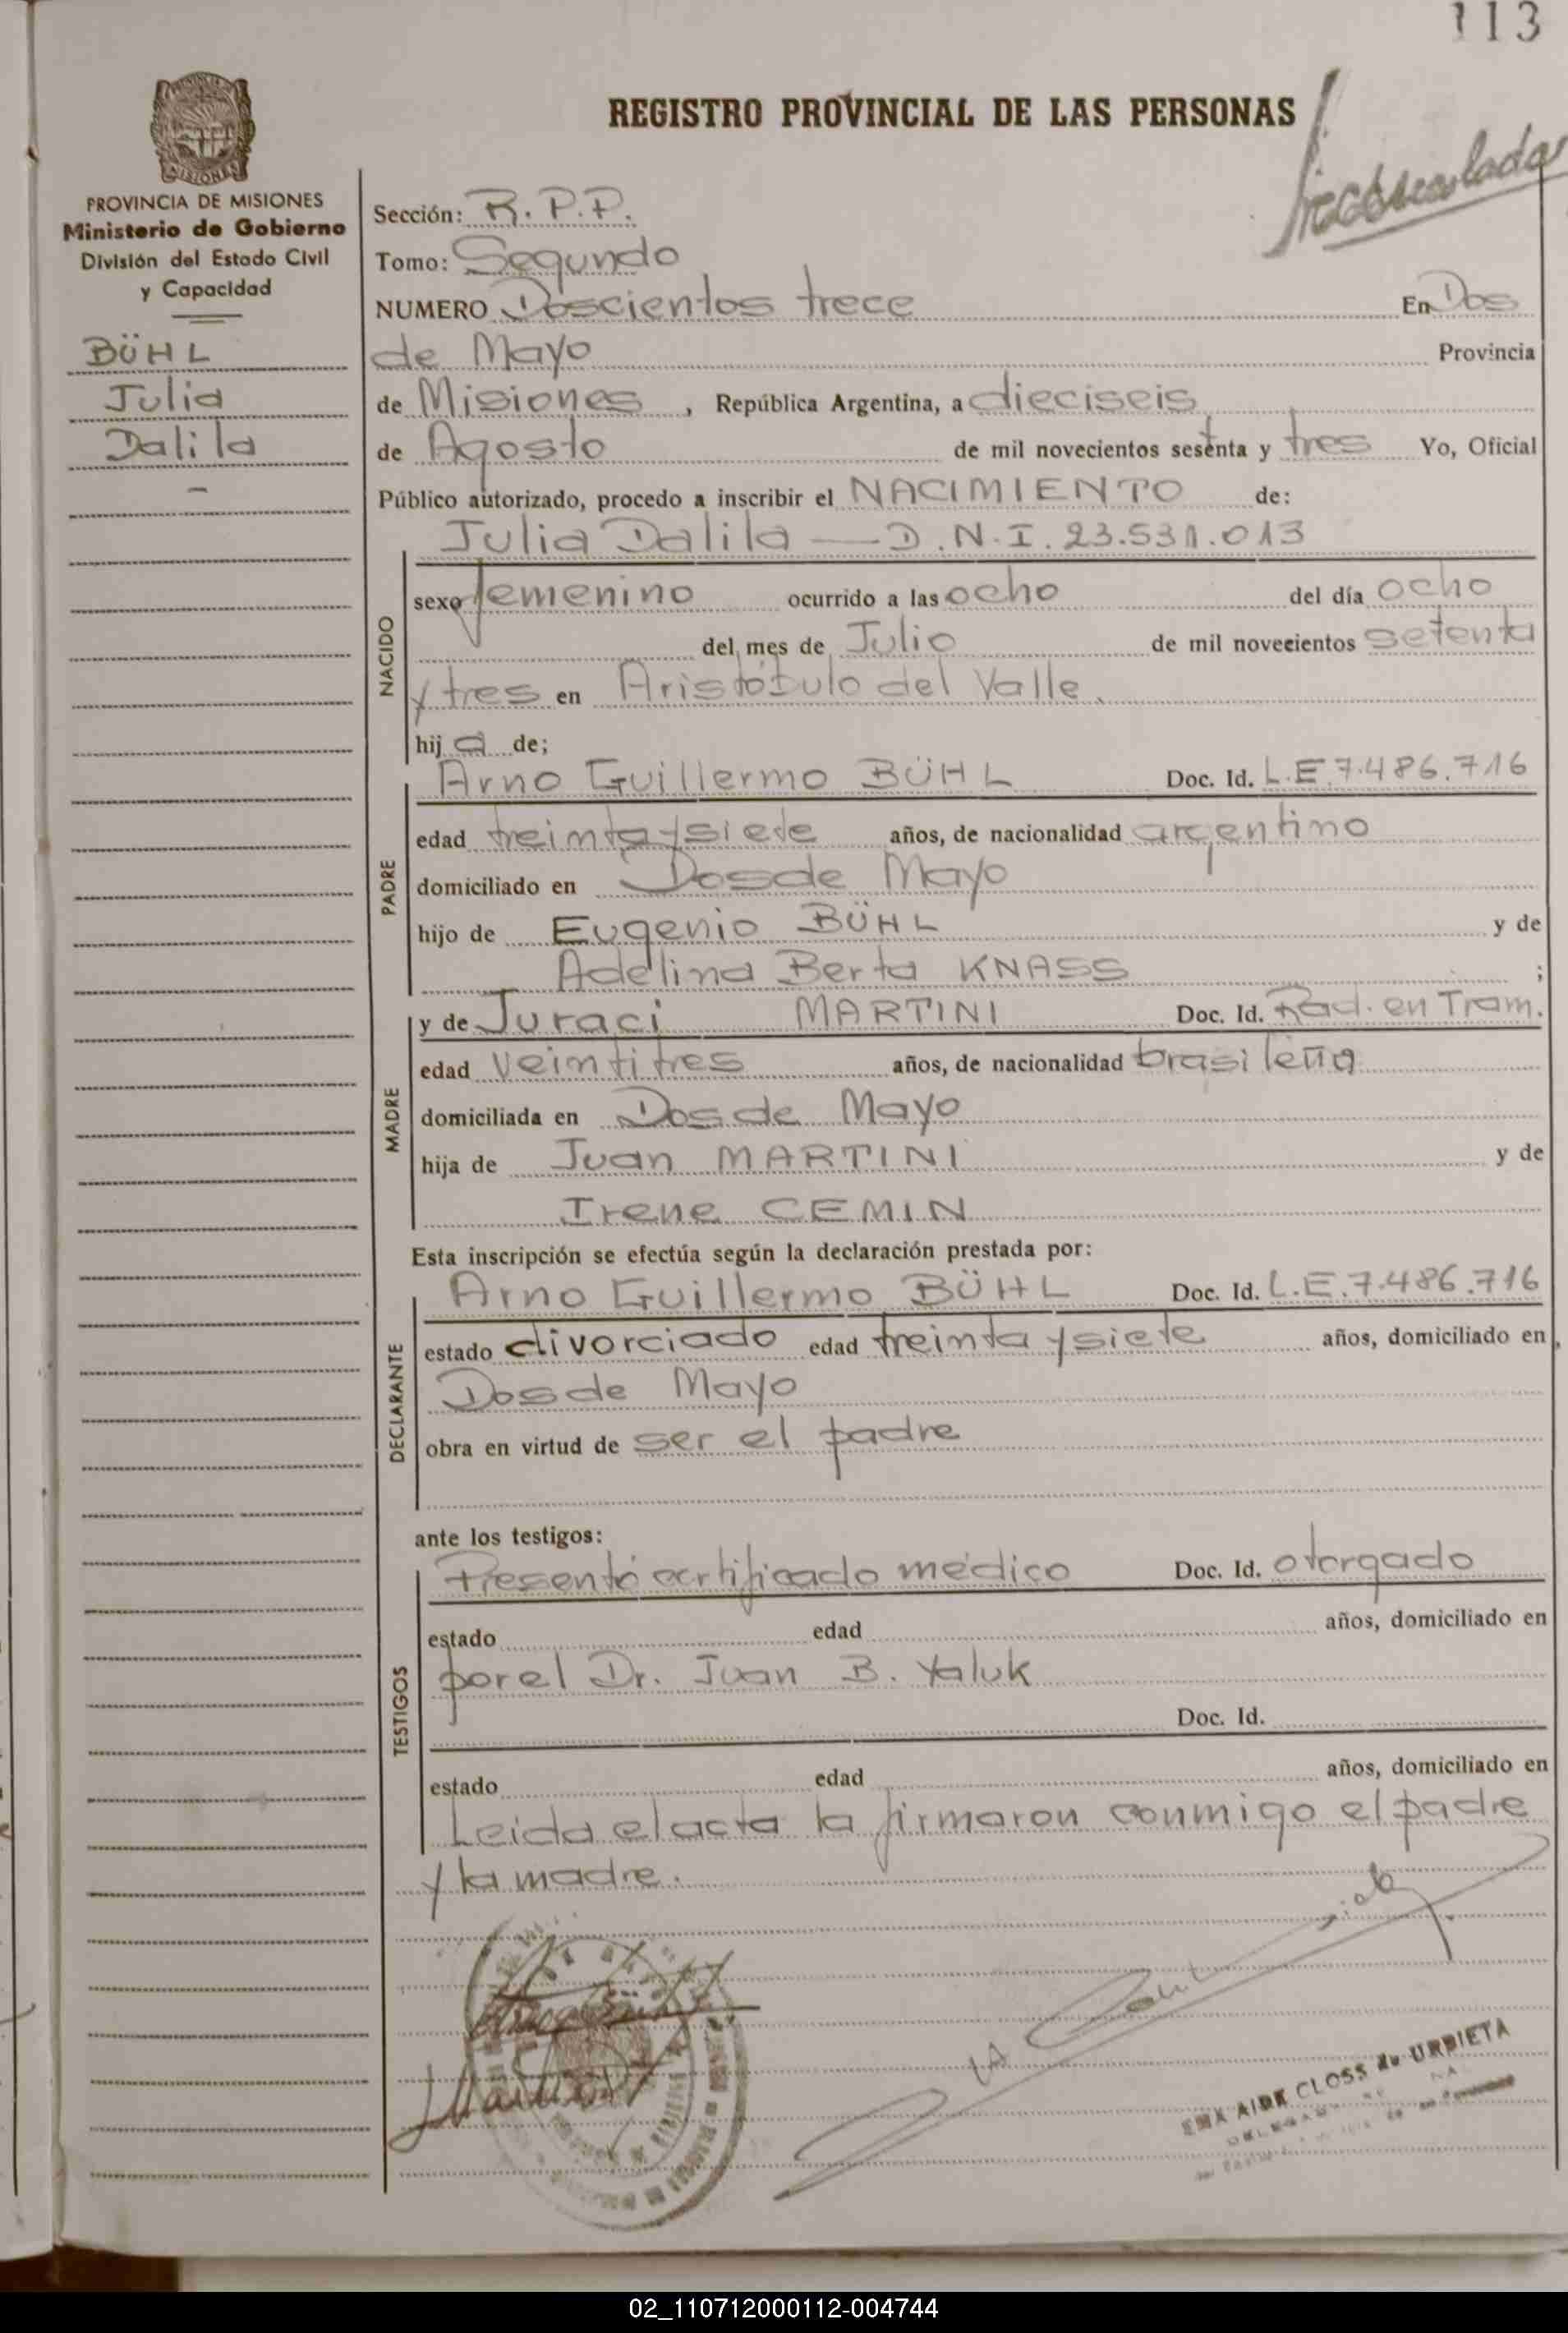 113
REGISTRO PROVINCIAL DE LAS PERSONAS
PROVINCIA DE MISIONES
Ministerio de Gobierno
División del Estado Civil
y Capacidad
BÜHL
Julia
Dalila
Sección: R. P. P.
Tomo: Segundo
NUMERO Doscientos trece En Dos
de Mayo Provincia
de Misiones, República Argentina, a dieciseis
de Agosto de mil novecientos setenta y tres Yo, Oficial
Público autorizado, procedo a inscribir el NACIMIENTO de:
NACIDO
Julia Dalila — D.N.I. 23.531.013
sexo femenino ocurrido a las ocho del día ocho
del mes de Julio de mil novecientos setenta
y tres en Aristóbulo del Valle.
hij a de;
PADRE
Arno Guillermo BÜHL Doc. Id. L.E 7.486.716
edad treinta y siete años, de nacionalidad argentino
domiciliado en Dos de Mayo
hijo de Eugenio BÜHL y de
Adelina Berta KNASS ;
MADRE
y de Juraci MARTINI Doc. Id. Rad. en Tram.
edad veintitres años, de nacionalidad brasileña
domiciliada en Dos de Mayo
hija de Juan MARTINI y de
Irene CEMIN
Esta inscripción se efectúa según la declaración prestada por:
DECLARANTE
Arno Guillermo BÜHL Doc. Id. L.E. 7.486.716
estado divorciado edad treinta y siete años, domiciliado en
Dos de Mayo
obra en virtud de ser el padre
ante los testigos:
TESTIGOS
Presentó certificado médico Doc. Id. otorgado
estado edad años, domiciliado en
por el Dr. Juan B. Yaluk
Doc. Id.
estado edad años, domiciliado en
Leida el acta la firmaron conmigo el padre
y la madre.
EMA AIDE CLOSS de URBIETA
02_110712000112-004744